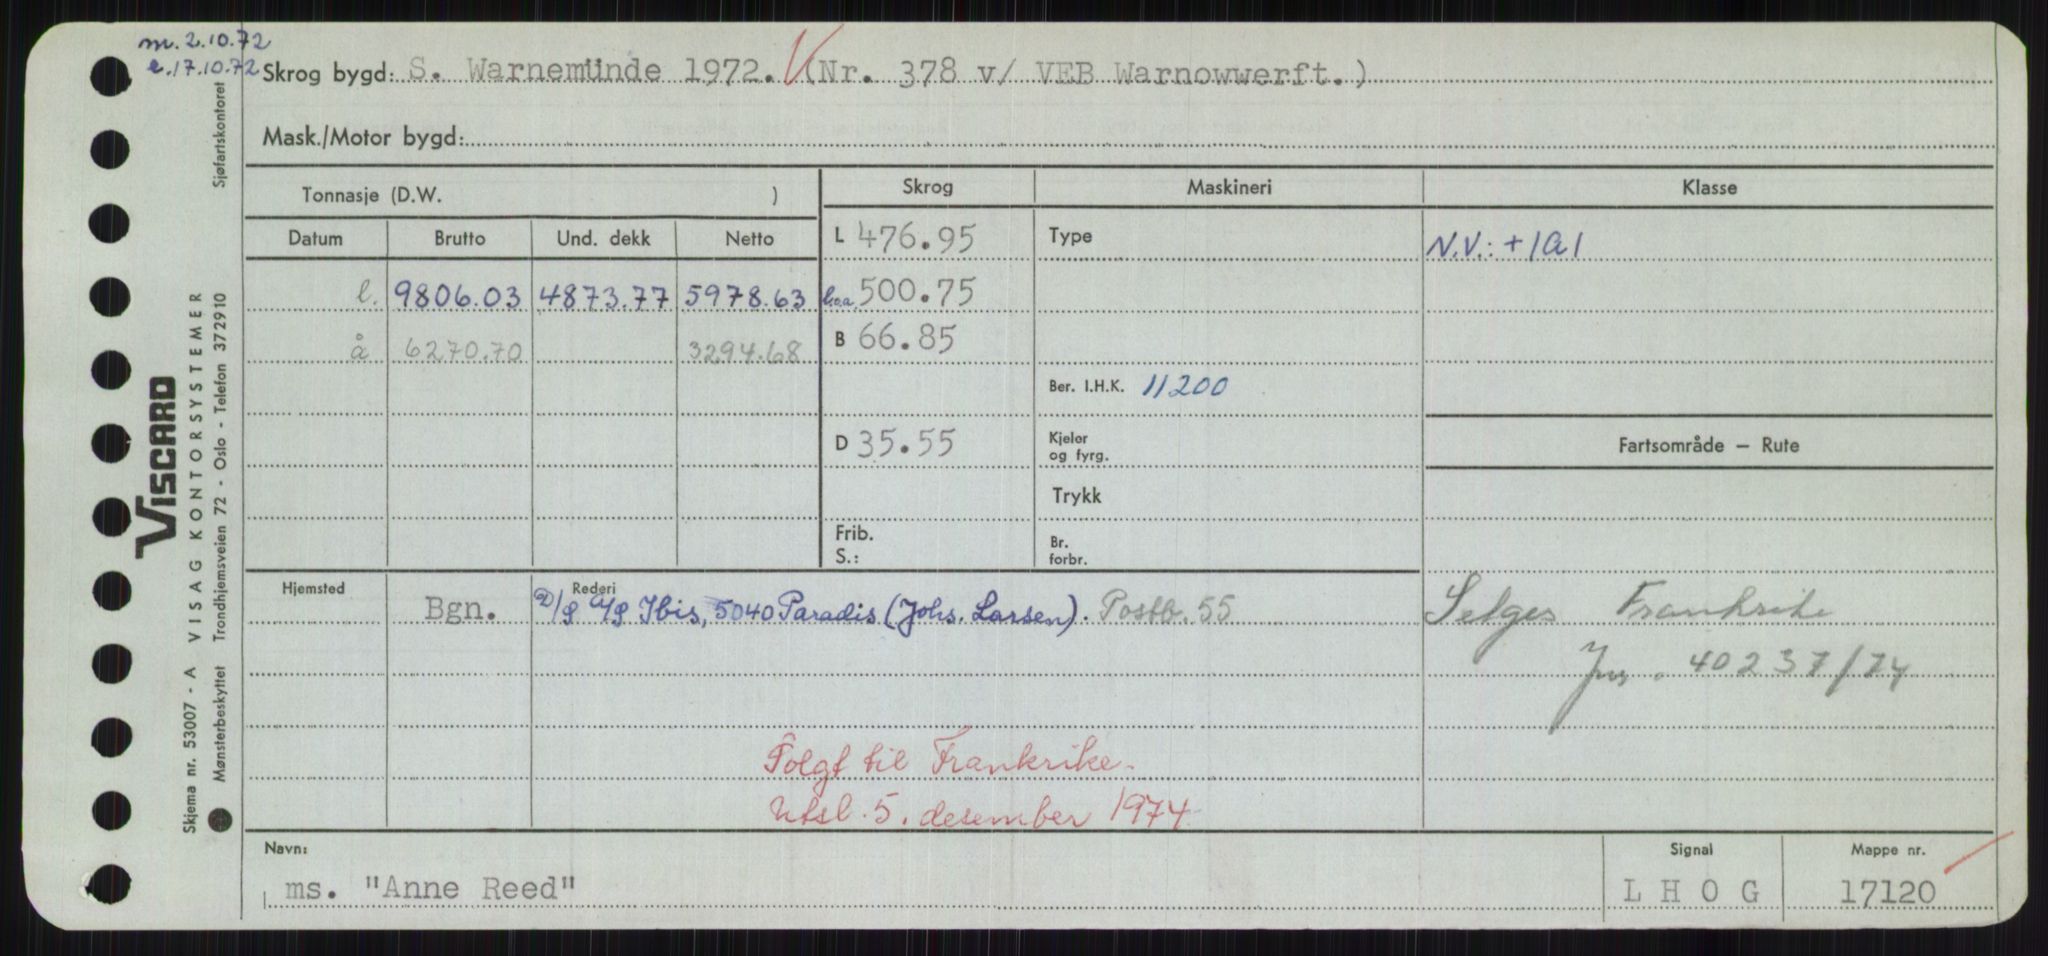 m. 2.10.72
e. 17.10.72
Skrog bygd: S. Warnemünde 1972. V (Nr. 378 v/ VEB Warnowwerft.)
Mask./Motor bygd:
Tonnasje (D.W. )
Skrog
Maskineri
Klasse
Datum Brutto Und. dekk Netto
L 476.95
Type
N.V.: +1A1
l. 9806.03 4873.77 5978.63
l.o.a. 500.75
å 6270.70 3294.68
B 66.85
Ber. I.H.K. 11200
D 35.55
Kjeler og fyrg.
Fartsområde — Rute
Trykk
Frib. S.:
Br. forbr.
Hjemsted
Rederi
Bgn. D/S A/S Ibis, 5040 Paradis (Johs. Larsen). Postb. 55
Selges Frankrike
Jnr. 40237/74
Solgt til Frankrike.
Utsl. 5. desember 1974
Navn:
ms. "Anne Reed"
Signal
L H O G
Mappe nr.
17120
VISCARD
Skjema nr. 53007 - A VISAG KONTORSYSTEMER
Mønsterbeskyttet Trondhjemsveien 72 - Oslo - Telefon 372910
Sjøfartskontoret